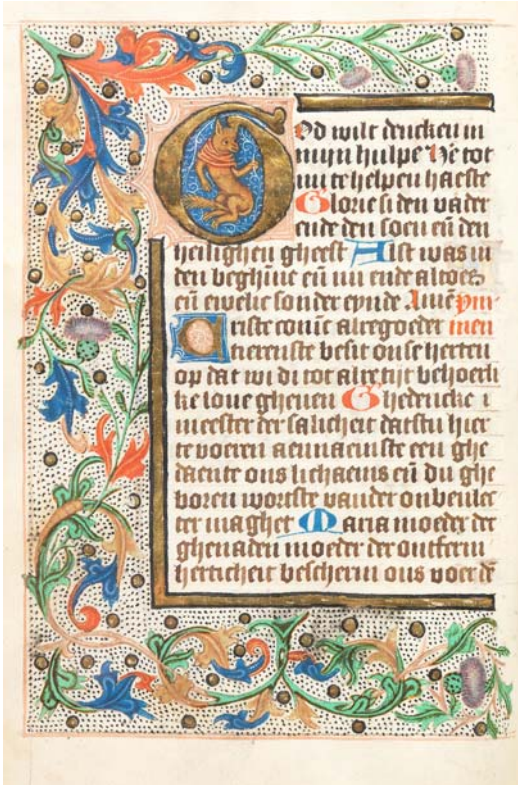 God wilt dencken in
mijn hulpe He tot
mi te helpen haeste
Glorie si den vader
ende den soen eñ den
heilighen gheest Alst was in
den beghĩne eñ nu ende altoes
eñ ewelic sonder eynde Amẽ ym-
Criste coninc alregoeder nmen
tierenste besit onse herten
op dat wi di tot alre tijt behoerli
ke loue gheuen Ghedencke i
meester der salicheit datstu hier
te voeren aennaemste een ghe
daente ons lichaems eñ du ghe
boren wortste vander onbeulec
ter maghet Maria moeder der
ghenaden moeder der ontferm
herticheit bescherm ons voer dẽ